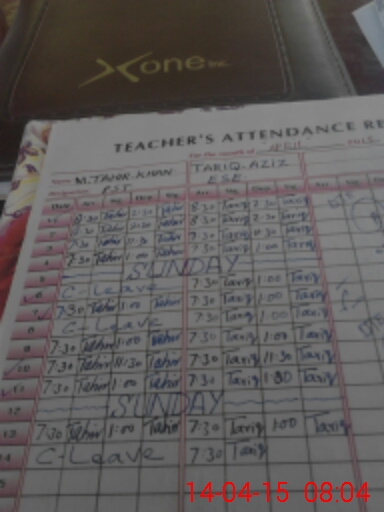 Xone Inc.
TEACHER'S ATTENDANCE RE
For the month of APRIL 2015
Name M.TAHIR.KHAN TARIQ-AZIZ
PST ESE
Date Arr. Sig. Dep. Sig. Arr. Sig. Dep. Sig.
8:30 Tahir 2:30 Tahir 8:30 Tariq 2:30 Tariq
8:30 Tahir 2:30 Tahir 8:30 Tariq 2:30 Tariq
7:30 Tahir 11:30 Tahir 7:30 Tariq 11:30 Tariq
4 7:30 Tahir 1:00 Tahir 7:30 Tariq 1:00 Tariq
5 SUNDAY
6 C-Leave 7:30 Tariq 1:00 Tariq
7 7:30 Tahir 1:00 Tahir 7:30 Tariq 1:00 Tariq
8 C-Leave 7:30 Tariq 1:00 Tariq
9 7:30 Tahir 1:00 Tahir 7:30 Tariq 1:00 Tariq
10 7:30 Tahir 11:30 Tahir 7:30 Tariq 11:30 Tariq
11 7:30 Tahir 1:00 Tahir 7:30 Tariq 1:30 Tariq
12 SUNDAY
13 7:30 Tahir 1:00 Tahir 7:30 Tariq 1:00 Tariq
14 C-Leave 7:30 Tariq
15
14-04-15 08:04